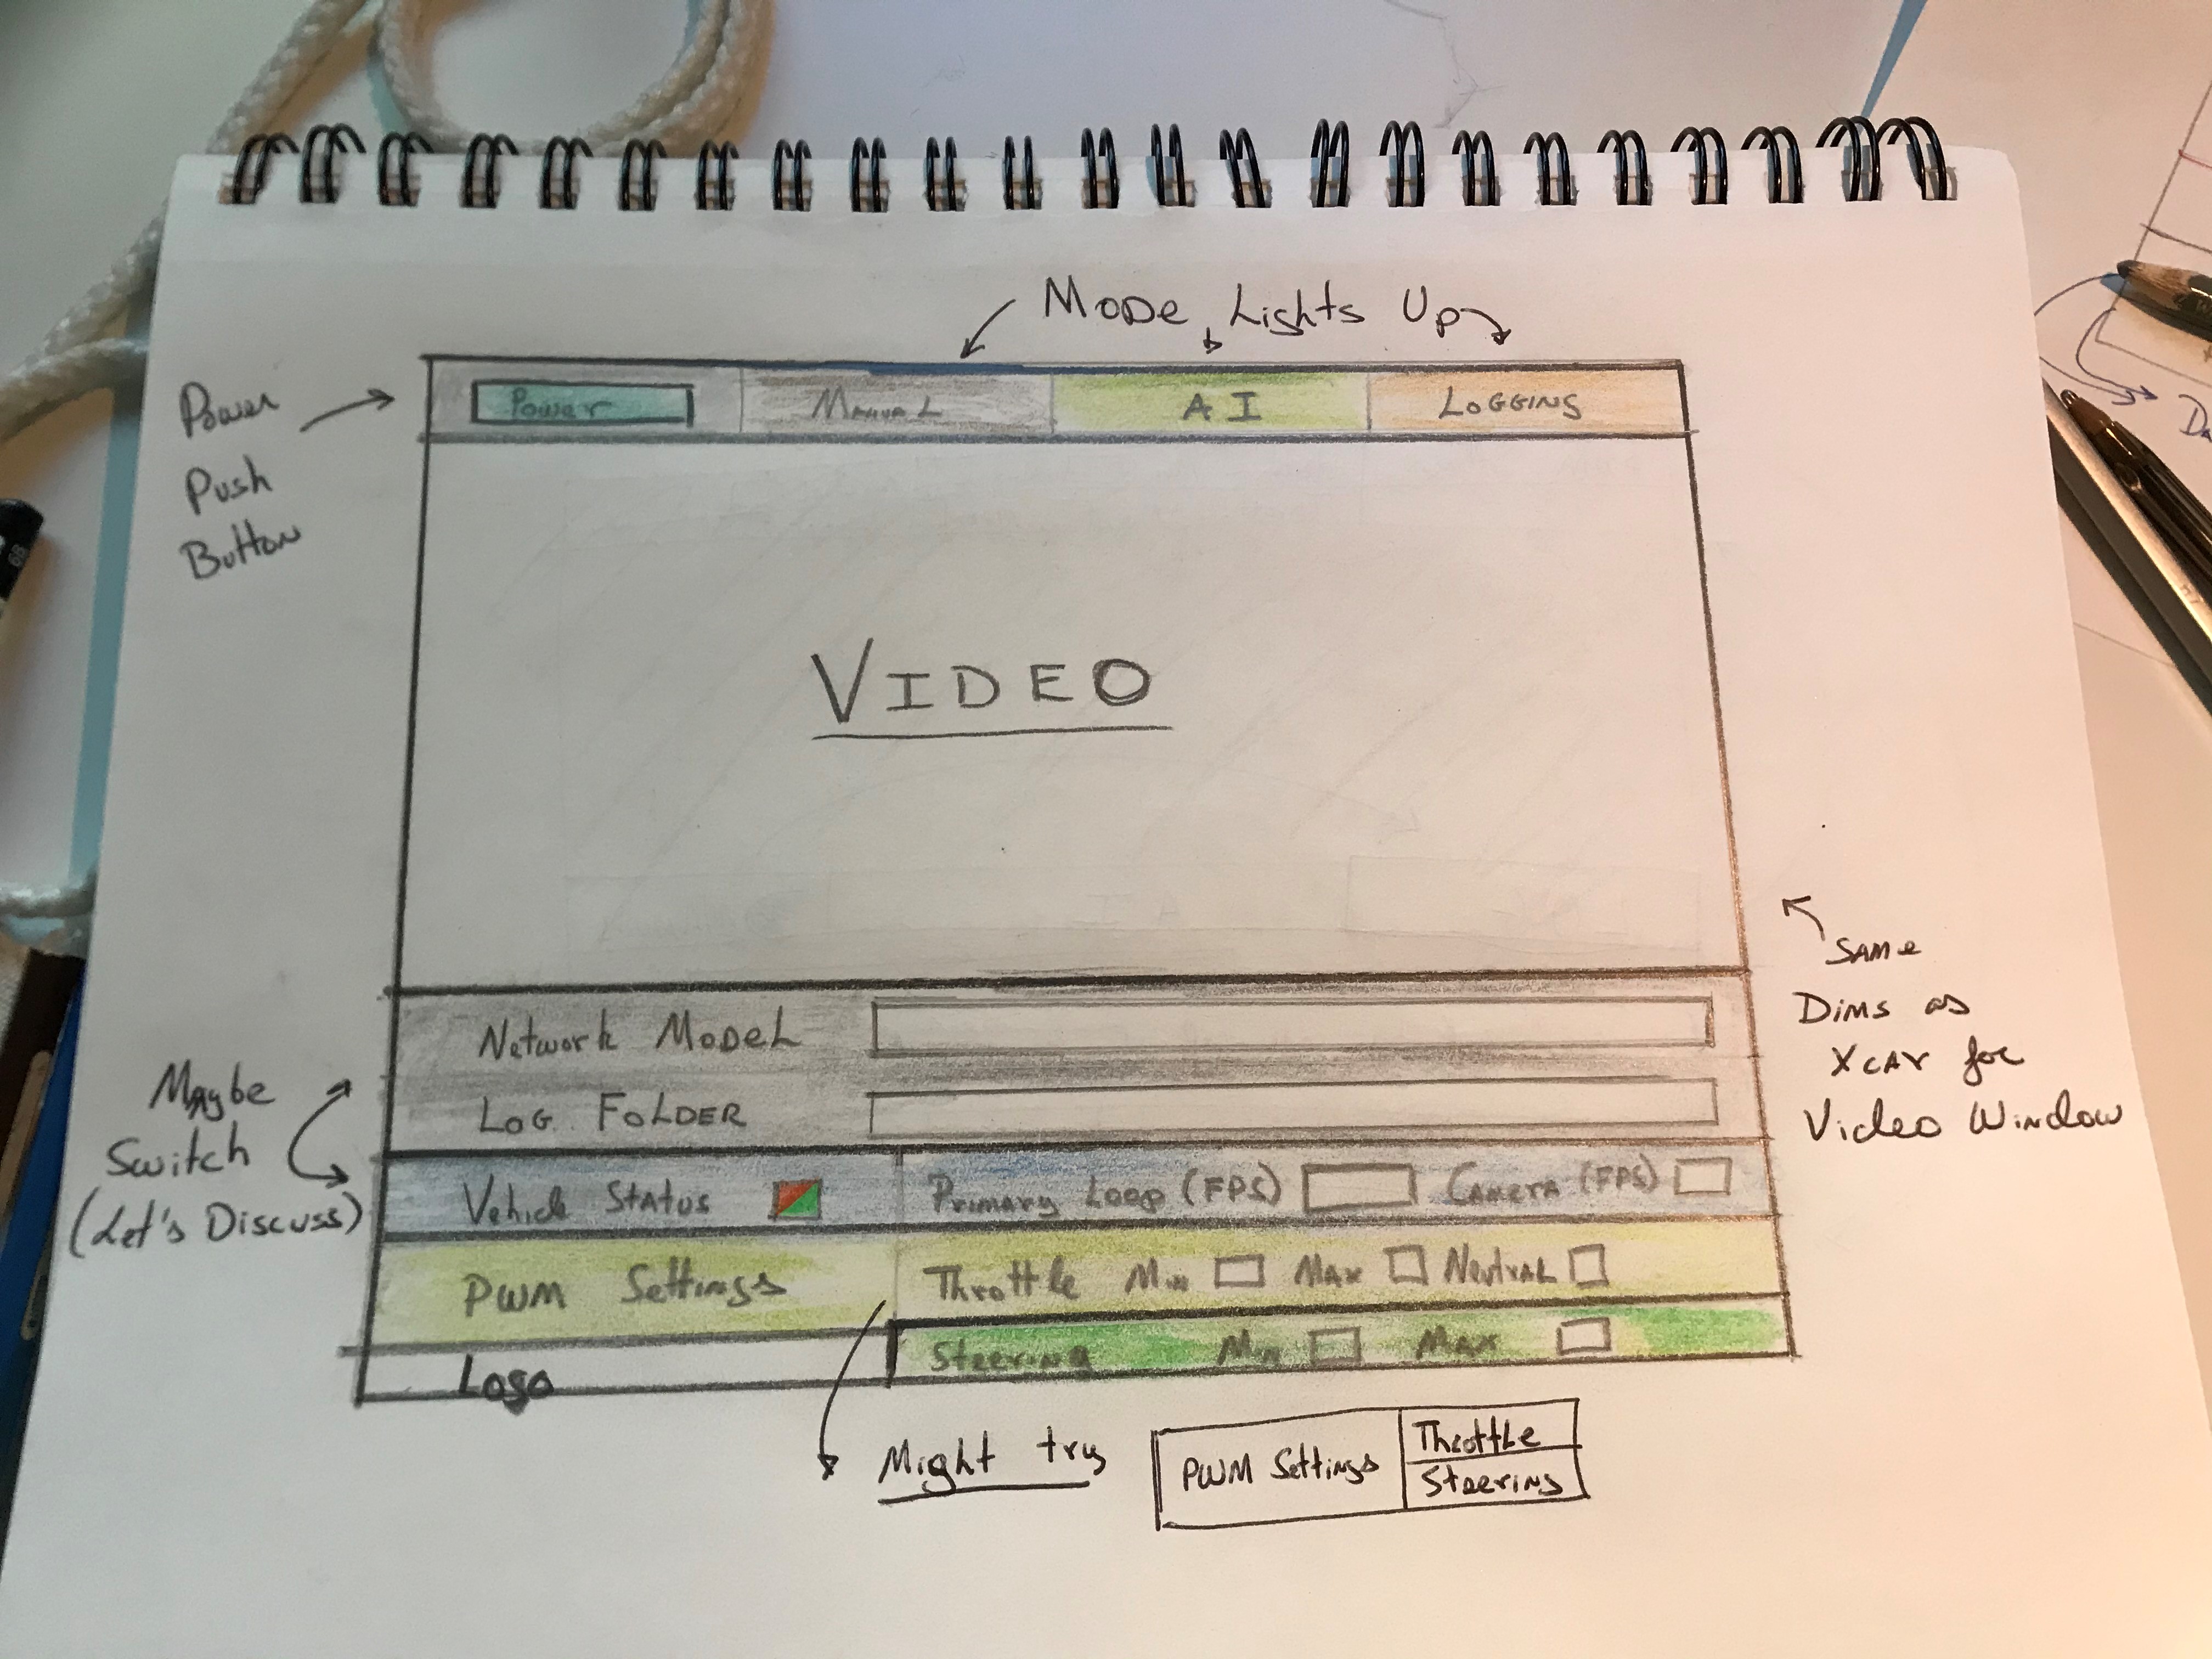 Mode Lights Up
Power
Push
Button
Power Manual AI Logging
VIDEO
Same
Dims as
Xcar for
Video Window
Network Model
Log Folder
Maybe
Switch
(Let's Discuss)
Vehicle Status Primary Loop (FPS) Camera (FPS)
PWM Settings Throttle Min Max Neutral
Logo Steering Min Max
Might try
PWM Settings Throttle
Steering
6B